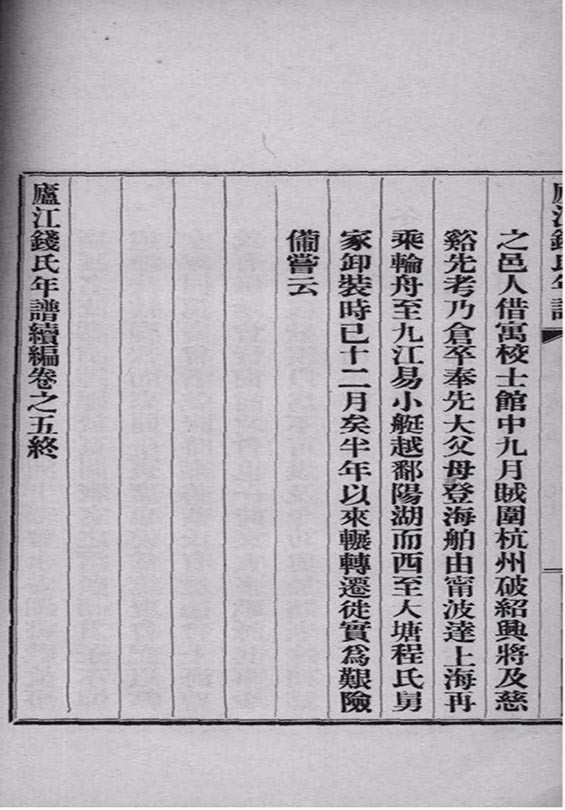 廬江錢氏年譜
之邑人借寓校士館中九月賊圍杭州破紹興將及慈
谿先考乃倉卒奉先大父母登海舶由甯波達上海再
乘輪舟至九江易小艇越鄱陽湖而西至大塘程氏舅
家卸裝時已十二月矣半年以來輾轉遷徙實爲艱險
備嘗云
廬江錢氏年譜續編卷之五終